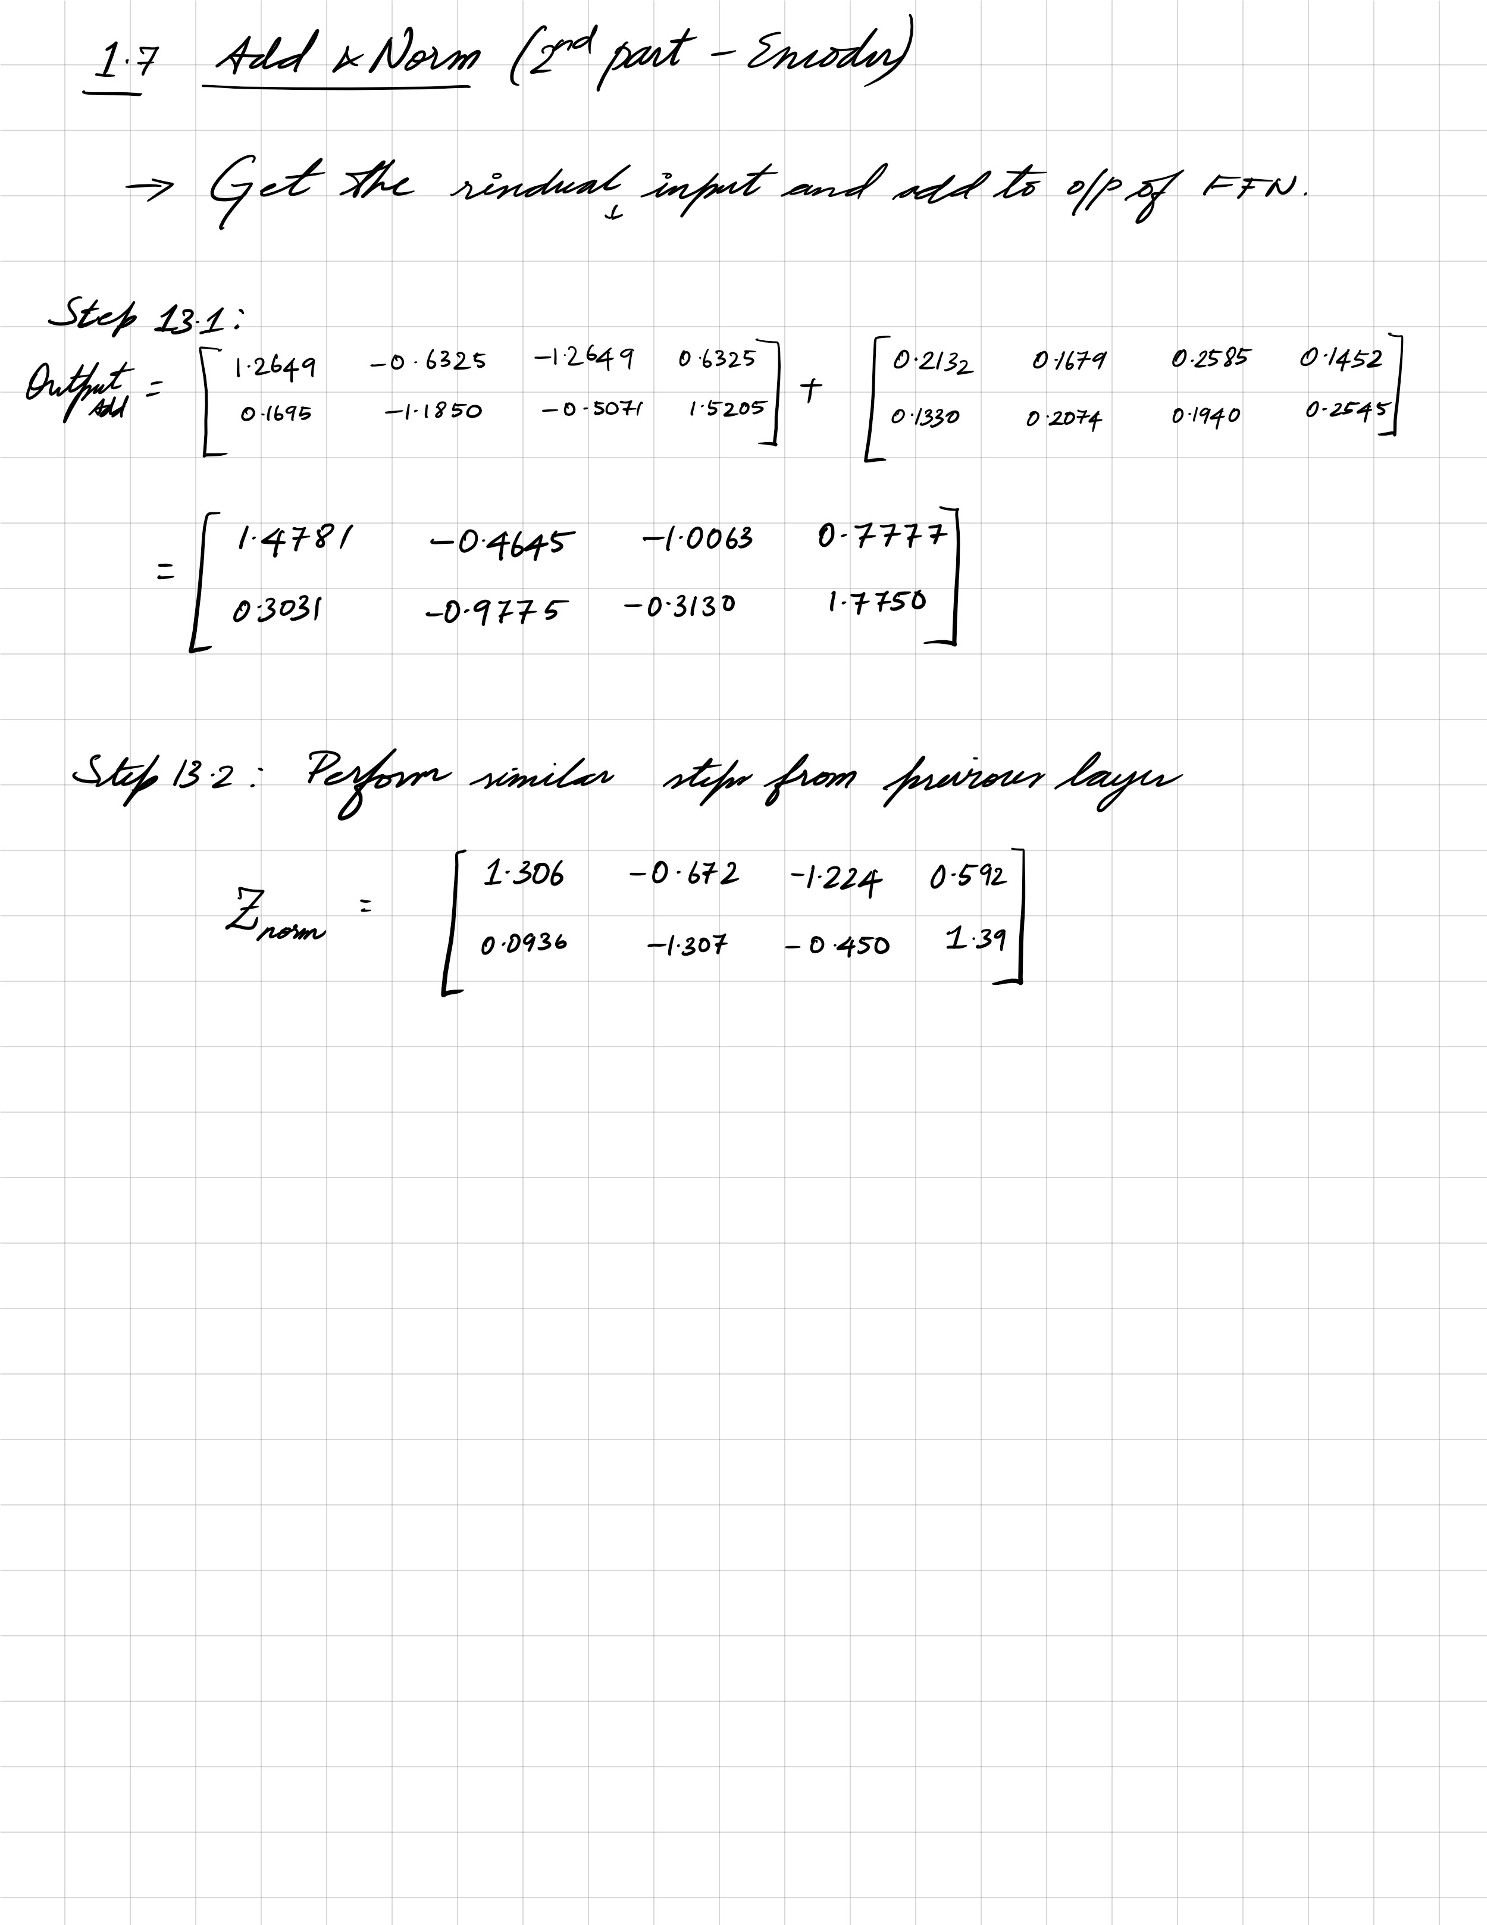 1.7 Add & Norm (2nd part - Encoder)
→ Get the residual input and add to o/p of FFN.
↓
Step 13.1:
Output Add = [ 1.2649 -0.6325 -1.2649 0.6325 ] + [ 0.2132 0.1679 0.2585 0.1452 ]
[ 0.1695 -1.1850 -0.5071 1.5205 ] [ 0.1330 0.2074 0.1940 0.2545 ]
= [ 1.4781 -0.4645 -1.0063 0.7777 ]
[ 0.3031 -0.9775 -0.3130 1.7750 ]
Step 13.2: Perform similar steps from previous layer
Z norm = [ 1.306 -0.672 -1.224 0.592 ]
[ 0.0936 -1.307 -0.450 1.39 ]